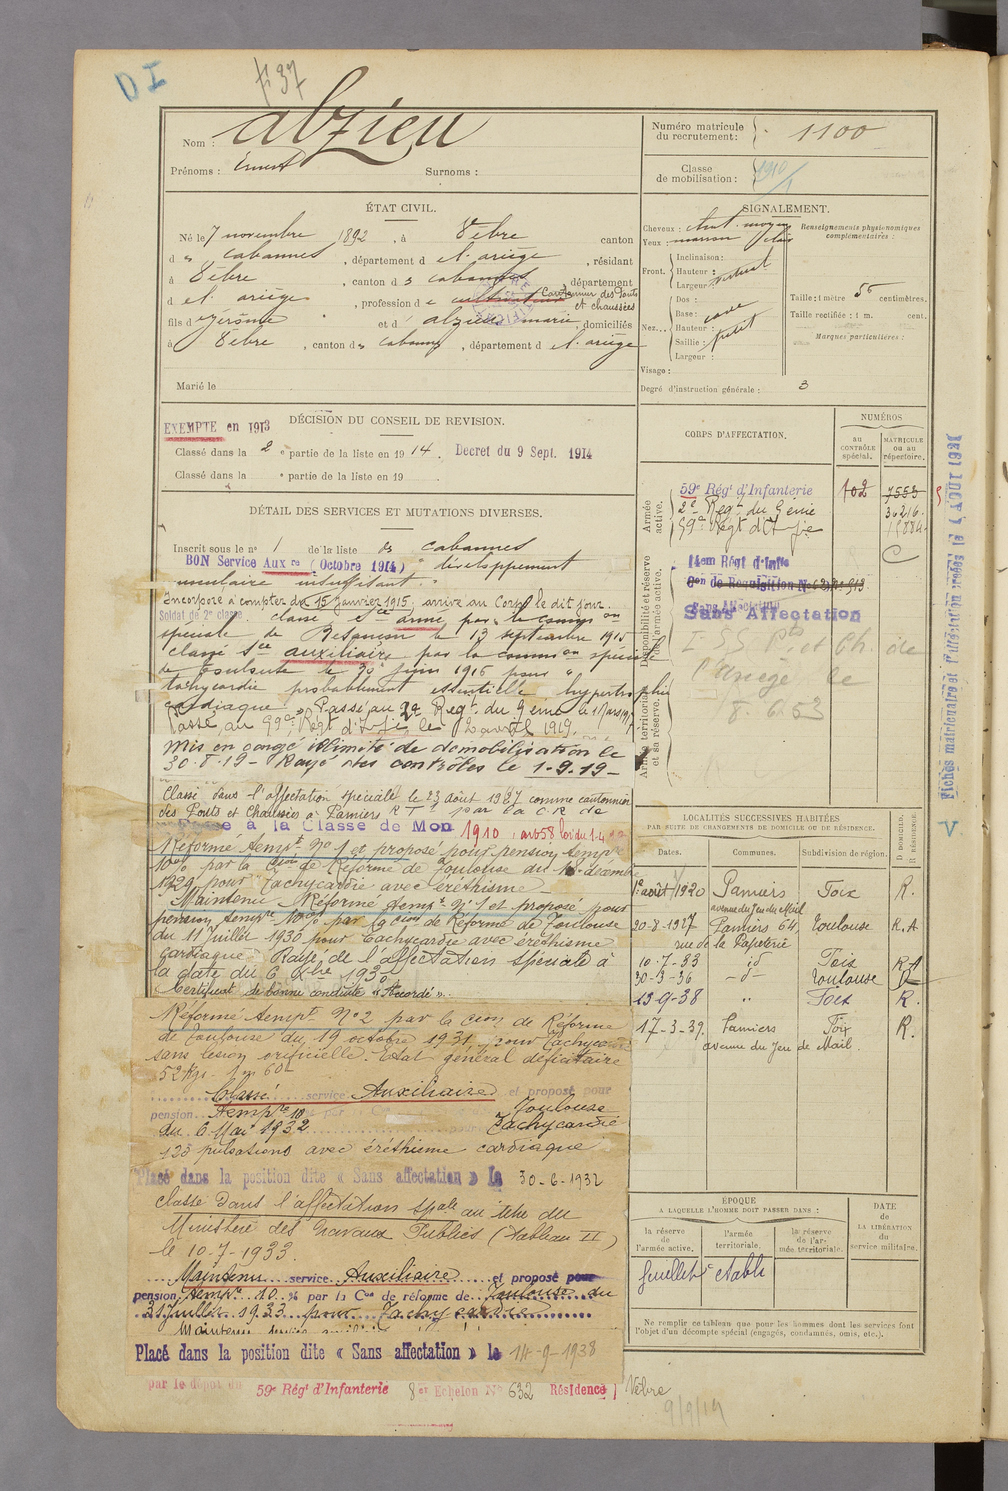 DI
f° 37
Nom : Alzieu
Prénoms : Ernest Surnoms :
Numéro matricule du recrutement : 1100
Classe de mobilisation : 1910/1
ÉTAT CIVIL.
Né le 7 novembre 1892, à Vèbre canton
d" Cabannes, département d el'ariège, résidant
à Vèbre, canton d s cabannes, département
d el'ariège, profession d e cultivateur Cantonnier des Ponts et chaussées
fils d Jérôme et d' alzieu marie, domiciliés
à Vèbre, canton d" Cabannes, département d el'ariège
Marié le
SIGNALEMENT.
Cheveux : chat. moyen
Yeux : marron clair
Front. Inclinaison :
Hauteur : vertical
Largeur :
Nez. Dos :
Base : cave
Hauteur :
Saillie : petit
Largeur :
Visage :
Renseignements physionomiques complémentaires :
Taille : 1 mètre 56 centimètres.
Taille rectifiée : 1 m. cent.
Marques particulières :
Degré d'instruction générale : 3
DÉCISION DU CONSEIL DE REVISION.
EXEMPTE en 1913
Classé dans la 2 e partie de la liste en 1914. Decret du 9 Sept. 1914
Classé dans la e partie de la liste en 19
DÉTAIL DES SERVICES ET MUTATIONS DIVERSES.
Inscrit sous le n° 1 de la liste de cabannes
BON Service Aux re (Octobre 1914) " développement
musculaire insuffisant. "
Incorporé à compter du 15 janvier 1915, arrivé au Corps le dit jour.
Soldat de 2e classe. classé sce armé par la commion
spéciale de Besançon le 13 septembre 1915
classé sce auxiliaire par la commion spéciale
de Toulouse le 30 juin 1916 pour "
tachycardie probablement essentielle hypertrophie
cardiaque " Passé au 2e Régt. du Génie le 1 Mars 1917
Passé au 59e Régt d'Inf ie le 2 avril 1919.
Mis en congé illimité de démobilisation le
30-8-19 - Rayé des contrôles le 1-9-19 -
Classé dans l'affectation spéciale le 23 Août 1927 comme cantonnier
des Ponts et Chaussées à Pamiers R T par la C R de
Passe à la Classe de Mon 1910, art 58 loi du 1-4
Réformé tempre No 1 et proposé pour pension tempre
10% par la Cion de Réforme de Toulouse du décembre
1929 pour Tachycardie avec éréthisme
Maintenu Réformé tempre No 1 et proposé pour
pension tempre 10% par la Cion de Réforme de Toulouse
du 11 Juillet 1930 pour tachycardie avec éréthisme
cardiaque. Rayé de l'affectation spéciale à
la date du 6 Xbre 1930
Certificat de bonne conduite "Accordé".
Réformé tempre No 2 par la Cion de Réforme
de Toulouse du 19 octobre 1931 pour Tachycardie
sans lésion orificielle. Etat général déficitaire
52 Kgs - 1m 60
Classé service Auxiliaire et proposé pour
pension tempre 10 Toulouse
du 6 Mai 1932 pour Tachycardie
125 pulsations avec éréthisme cardiaque
Placé dans la position dite « Sans affectation » le 30-6-1932
classé dans l'affectation spale au titre du
Ministère des Travaux Publics (Tableau II)
le 10-7-1933.
Maintenu service Auxiliaire et proposé pour
pension tempre 10 % par la Con de réforme de Toulouse du
31 Juillet 1933 pour Tachycardie
Maintenu service auxiliaire
Placé dans la position dite « Sans affectation » le 14-9-1938
par le dépôt du 59e Régt d'Infanterie 8 er Echelon No 632 Résidence Vèbre
9/9/19
CORPS D'AFFECTATION.
NUMÉROS
AU CONTRÔLE spécial.
MATRICULE OU AU répertoire.
Armée active.
59e Régt d'Infanterie 102 7553
2e Régt du Génie 30216
59e Régt d'Inf ie 15884
Disponibilité et réserve de l'armée active.
14em Régt d'Infie C
Con de Requisition
Sans Affectation
Sans Affectation
Armée territoriale et sa réserve.
I SS Pts et Ch. de
l'Ariège le
8.6.53
Fiches matricule et l'affectation
LOCALITÉS SUCCESSIVES HABITÉES
PAR SUITE DE CHANGEMENTS DE DOMICILE OU DE RÉSIDENCE.
Dates. Communes. Subdivision de région. D DOMICILE. R RÉSIDENCE.
1er août 1920 Pamiers Foix R.
avenue du Jeu du Mail
30-8-1927 Pamiers 64, Toulouse R.A
rue de la Papeterie
10-7-33 id Foix R A
30-3-36 - d° - Toulouse R
13-9-38 " Foix R.
17-3-39. Pamiers Foix R.
avenue du Jeu de Mail.
V
ÉPOQUE
A LAQUELLE L'HOMME DOIT PASSER DANS :
la réserve de l'armée active.
l'armée territoriale.
la réserve de l'armée territoriale.
DATE de LA LIBÉRATION du service militaire.
feuillet établi
Ne remplir ce tableau que pour les hommes dont les services font
l'objet d'un décompte spécial (engagés, condamnés, omis, etc.).